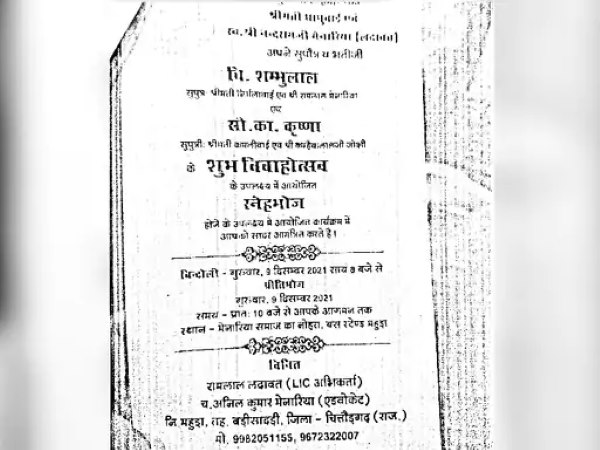 श्रीमती धापुबाई एवं
स्व. श्री नन्दरामजी मेनारिया (लदावत)
अपने सुपौत्र व भतीजे
चि. शम्भुलाल
सुपुत्र: श्रीमती एवं श्री रामलाल मेनारिया
एवं
सौ.का. कृष्णा
सुपुत्री: श्रीमती एवं श्री जोशी
के शुभ विवाहोत्सव
के उपलक्ष्य में आयोजित
स्नेहभोज
होने के उपलक्ष्य में आयोजित कार्यक्रम में
आपको सादर आमंत्रित करते है।
बिन्दोली - गुरुवार, 9 दिसम्बर 2021 सायं 8 बजे से
प्रीतिभोज
गुरुवार, 9 दिसम्बर 2021
समय - प्रातः 10 बजे से आपके आगमन तक
स्थान - मेनारिया समाज का नोहरा, बस स्टेण्ड महुड़ा
विनित
रामलाल लदावत (LIC अभिकर्ता)
च.अनिल कुमार मेनारिया (एडवोकेट)
नि महुड़ा, तह. बड़ीसादड़ी, जिला - चित्तौड़गढ़ (राज.)
मो. 9982051155, 9672322007